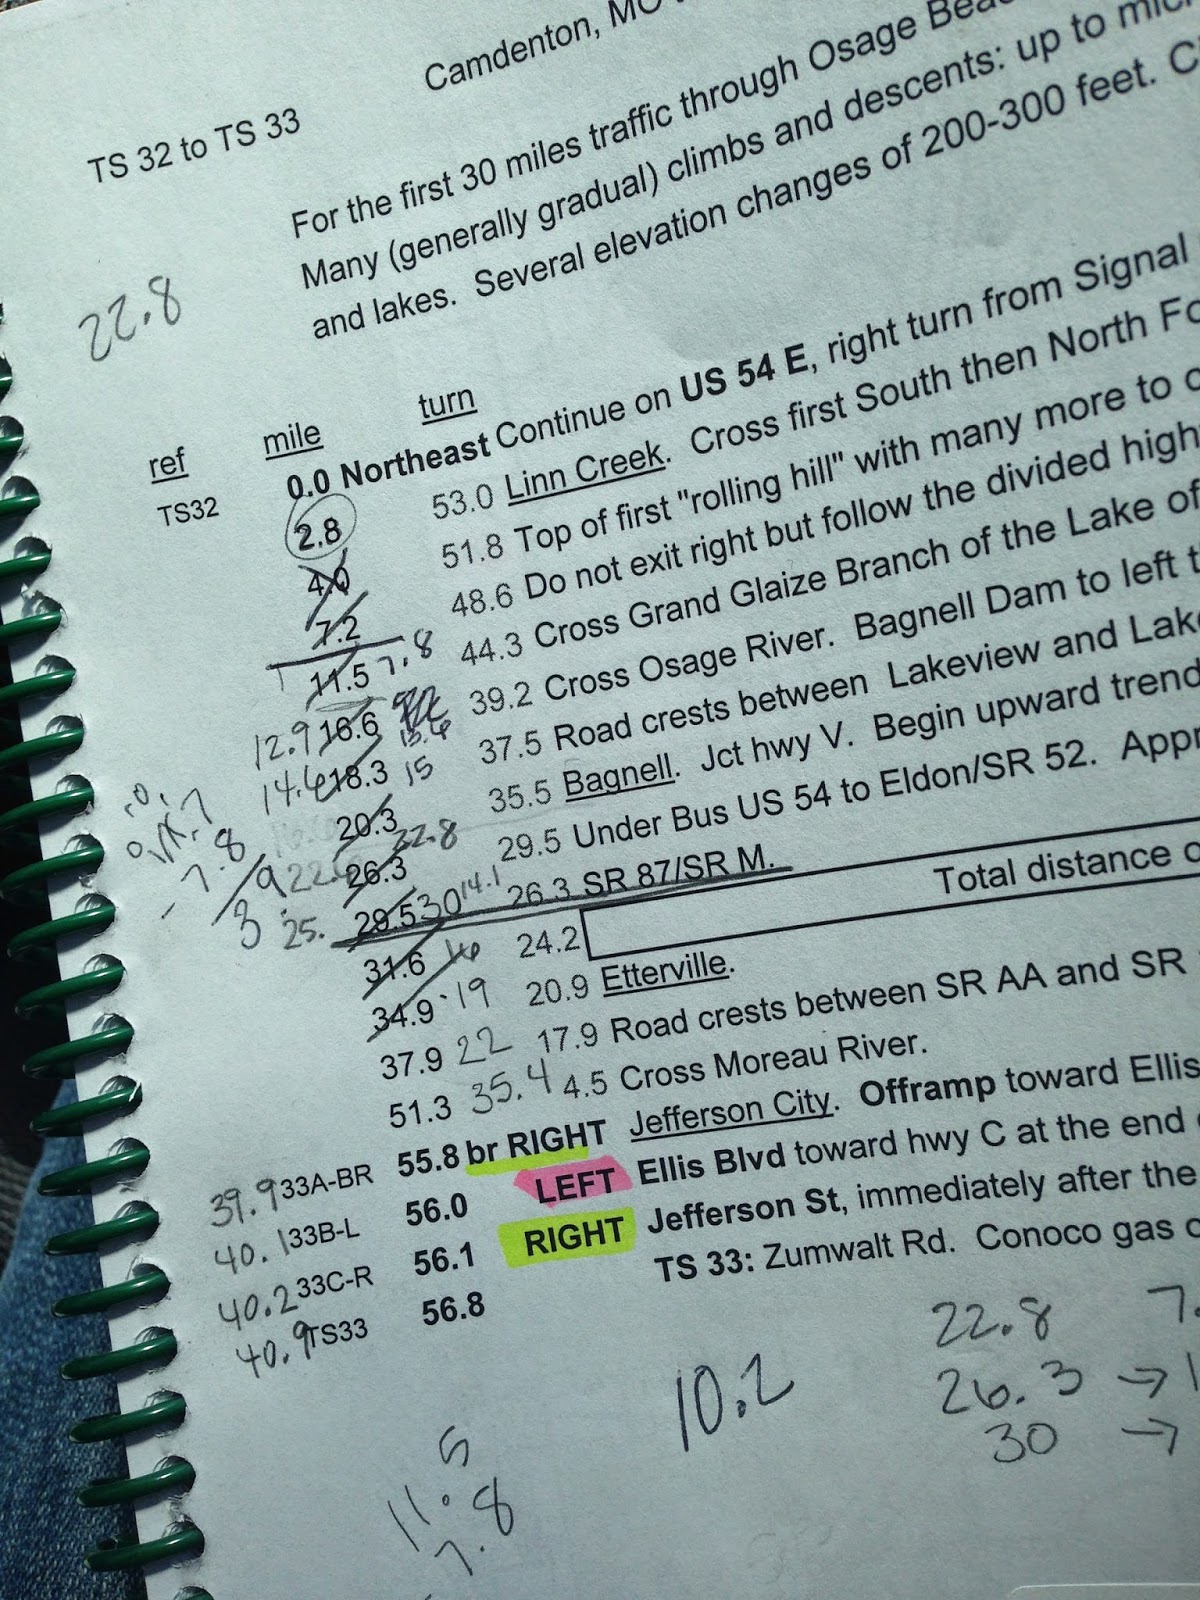 Camdenton, MO
TS 32 to TS 33
For the first 30 miles traffic through Osage
Many (generally gradual) climbs and descents: up to
and lakes. Several elevation changes of 200-300 feet.
22.8
ref mile turn
TS32 0.0 Northeast Continue on US 54 E, right turn from Signal
2.8 53.0 Linn Creek. Cross first South then North
4.0 51.8 Top of first "rolling hill" with many more to
7.2 48.6 Do not exit right but follow the divided
11.5 7.8 44.3 Cross Grand Glaize Branch of the Lake of
12.9 16.6 13.6 39.2 Cross Osage River. Bagnell Dam to left
14.6 18.3 15 37.5 Road crests between Lakeview and
20.3 35.5 Bagnell. Jct hwy V. Begin upward trend
26.3 22.8 29.5 Under Bus US 54 to Eldon/SR 52.
25. 29.5 30 14.1 26.3 SR 87/SR M.
31.6 16 24.2 Total distance
34.9 19 20.9 Etterville.
37.9 22 17.9 Road crests between SR AA and SR
51.3 35.4 4.5 Cross Moreau River.
39.9 33A-BR 55.8 br RIGHT Jefferson City. Offramp toward Ellis
40.1 33B-L 56.0 LEFT Ellis Blvd toward hwy C at the end
40.2 33C-R 56.1 RIGHT Jefferson St, immediately after the
40.9 TS33 56.8 TS 33: Zumwalt Rd. Conoco gas
22.8 7.
10.2 26.3 →
30 →
5
11.8
7.8